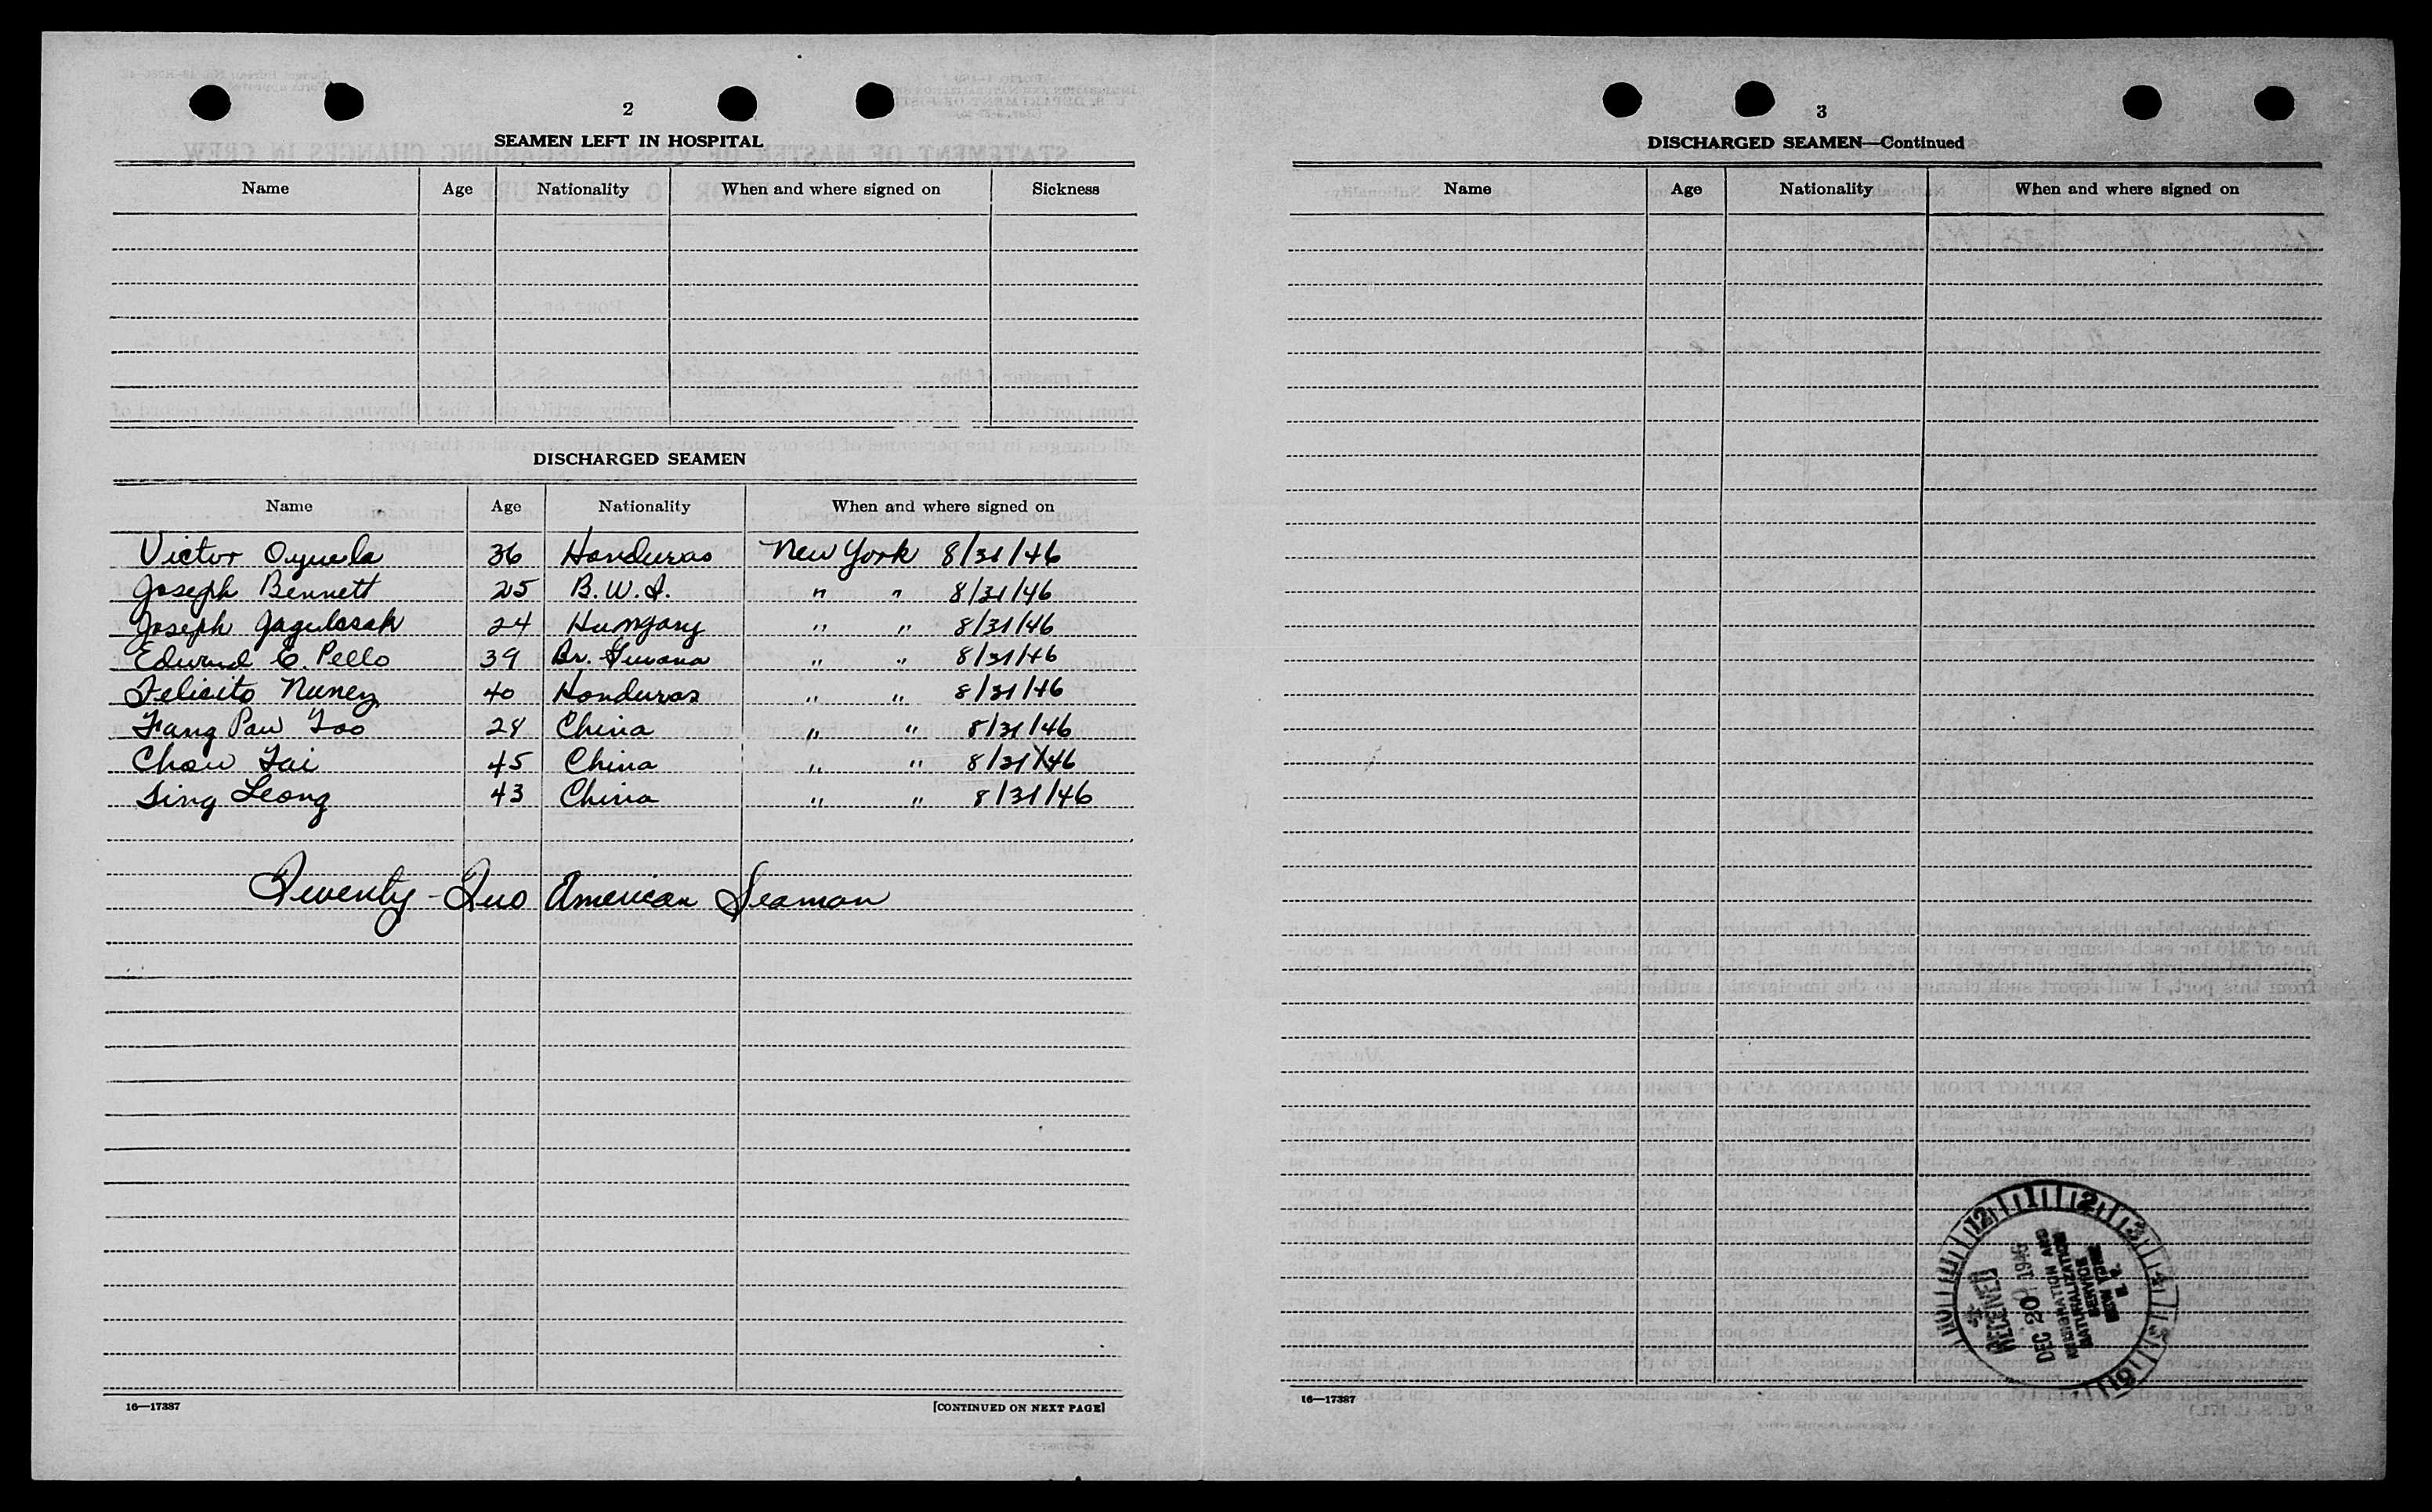 2
SEAMEN LEFT IN HOSPITAL
Name Age Nationality When and where signed on Sickness
DISCHARGED SEAMEN
Name Age Nationality When and where signed on
Victor Oyuela 36 Honduras New York 8/31/46
Joseph Bennett 25 B.W.I. " " 8/31/46
Joseph 24 Hungary " " 8/31/46
Edward E. Pello 39 Br. Guiana " " 8/31/46
Felicito Nunez 40 Honduras " " 8/31/46
China " " 8/31/46
Chow 45 China " " 8/31/46
Leong 43 China " " 8/31/46
Twenty-Two American Seaman
16—17387
[CONTINUED ON NEXT PAGE]
3
DISCHARGED SEAMEN—Continued
Name Age Nationality When and where signed on
RECEIVED
DEC 20 1946
IMMIGRATION AND
NATURALIZATION
SERVICE
NEW YORK
16—17387